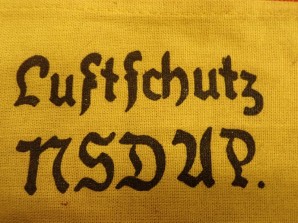 Luftschutz
NSDAP.